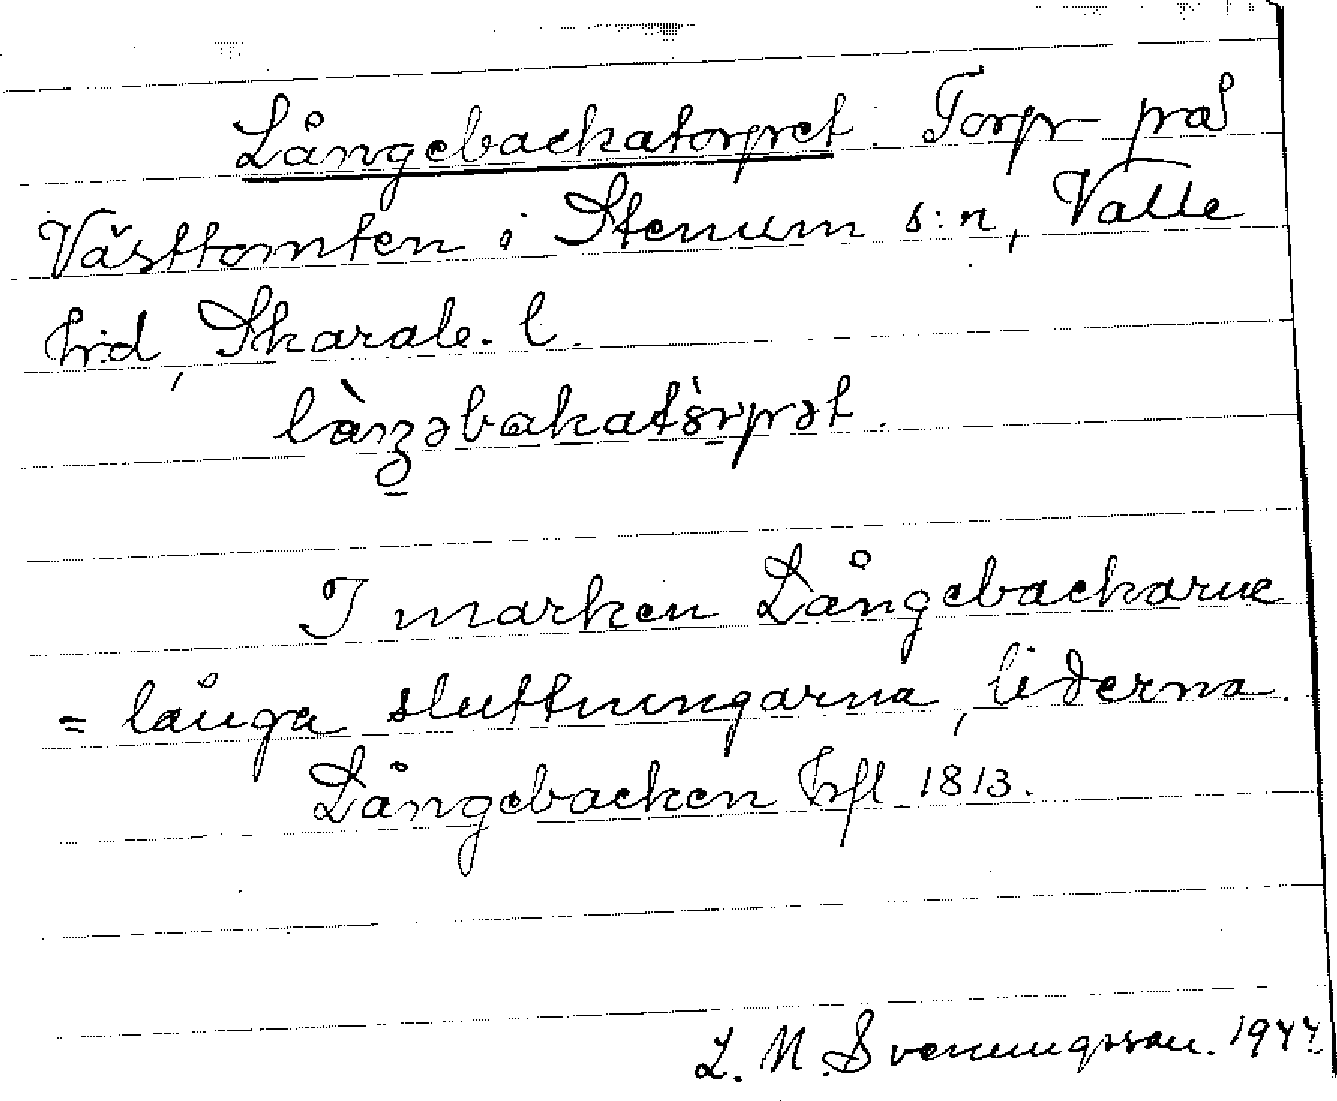 Långebackatorpet. Torp på
Västtomten i Stenum s:n, Valle
hd, Skarab. l.
I marken Långebackarne
= långa sluttningarna, liderna.
Långebacken hfl 1813.
L. M. Svenungsson. 1944